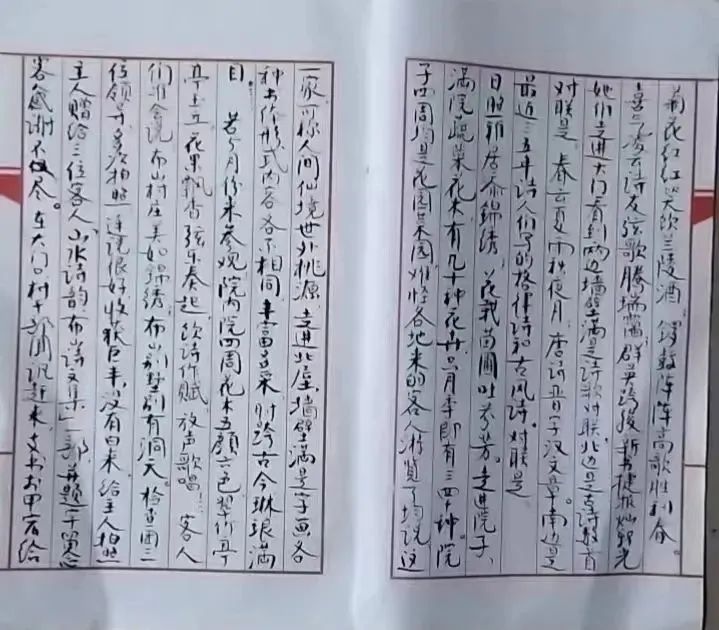 菊花红红笑饮兰陵酒，锣鼓阵阵高歌胜利春。
喜气 诗友弦歌腾瑞霭，群英 捷报灿朝光
她们走进大门看到两边墙壁满是诗歌对联，北边是 诗 首
对联是：春云夏雨秋夜月，唐诗晋字汉文章。南边是
最近三五年诗人们写的格律诗和古风诗。对联是
日照雅居添锦绣，花栽苗圃吐芬芳。走进院子、
满院蔬菜花木有几十种花卉只月季即有三四十种。院
子四周均是花园菜园，难怪各地来的客人游览了均说这
一家可称人间仙境世外桃源，走进北屋，墙壁满是字画，各
种书体形式内容各不相同，丰富多采，时跨古今琳琅满
目。若 月份来参观院内院四周花木五颜六色翠竹亭
亭玉立，花果飘香弦乐奏起，饮诗作赋，放声歌唱！客人
们准会说布山村庄美如锦绣；布山别墅别有洞天。检查团三
位领导多次拍照连说很好收获巨丰，没有白来，给主人拍照
主人赠给三位客人《山水诗韵》《布山诗文集》一部，并题字留念
客人感谢不尽。在大门口村干部 说起来，支书 甲有给